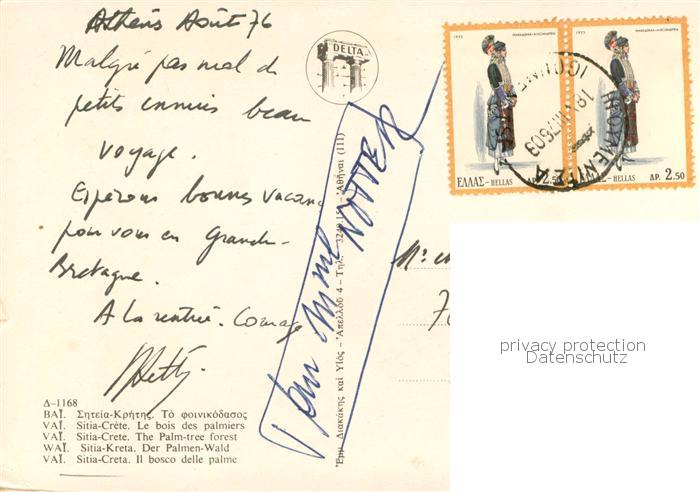 Athens Août 76
Malgré pas mal de
petits ennuis beau
voyage.
Espérons bonnes vacances
pour vous en Grande-
Bretagne.
A la rentrée. Courage
Δ-1168
ΒΑΪ. Σητεία-Κρήτης. Τὸ φοινικόδασος
VAÏ. Sitia-Crète. Le bois des palmiers
VAÏ. Sitia-Crete. The Palm-tree forest
WAÏ. Sitia-Kreta. Der Palmen-Wald
VAÏ. Sitia-Creta. Il bosco delle palme
DELTA
Ἐμμ. Διακάκης καὶ Υἱός - Ἀπελλοῦ 4 - Τηλ. - Ἀθῆναι (111)
Mme
1975
ΕΛΛΑΣ-HELLAS ΔΡ. 2.50
1975
ΕΛΛΑΣ-HELLAS ΔΡ. 2.50
ΗΓΟΥΜΕΝΙΤΣΑ
privacy protection
Datenschutz